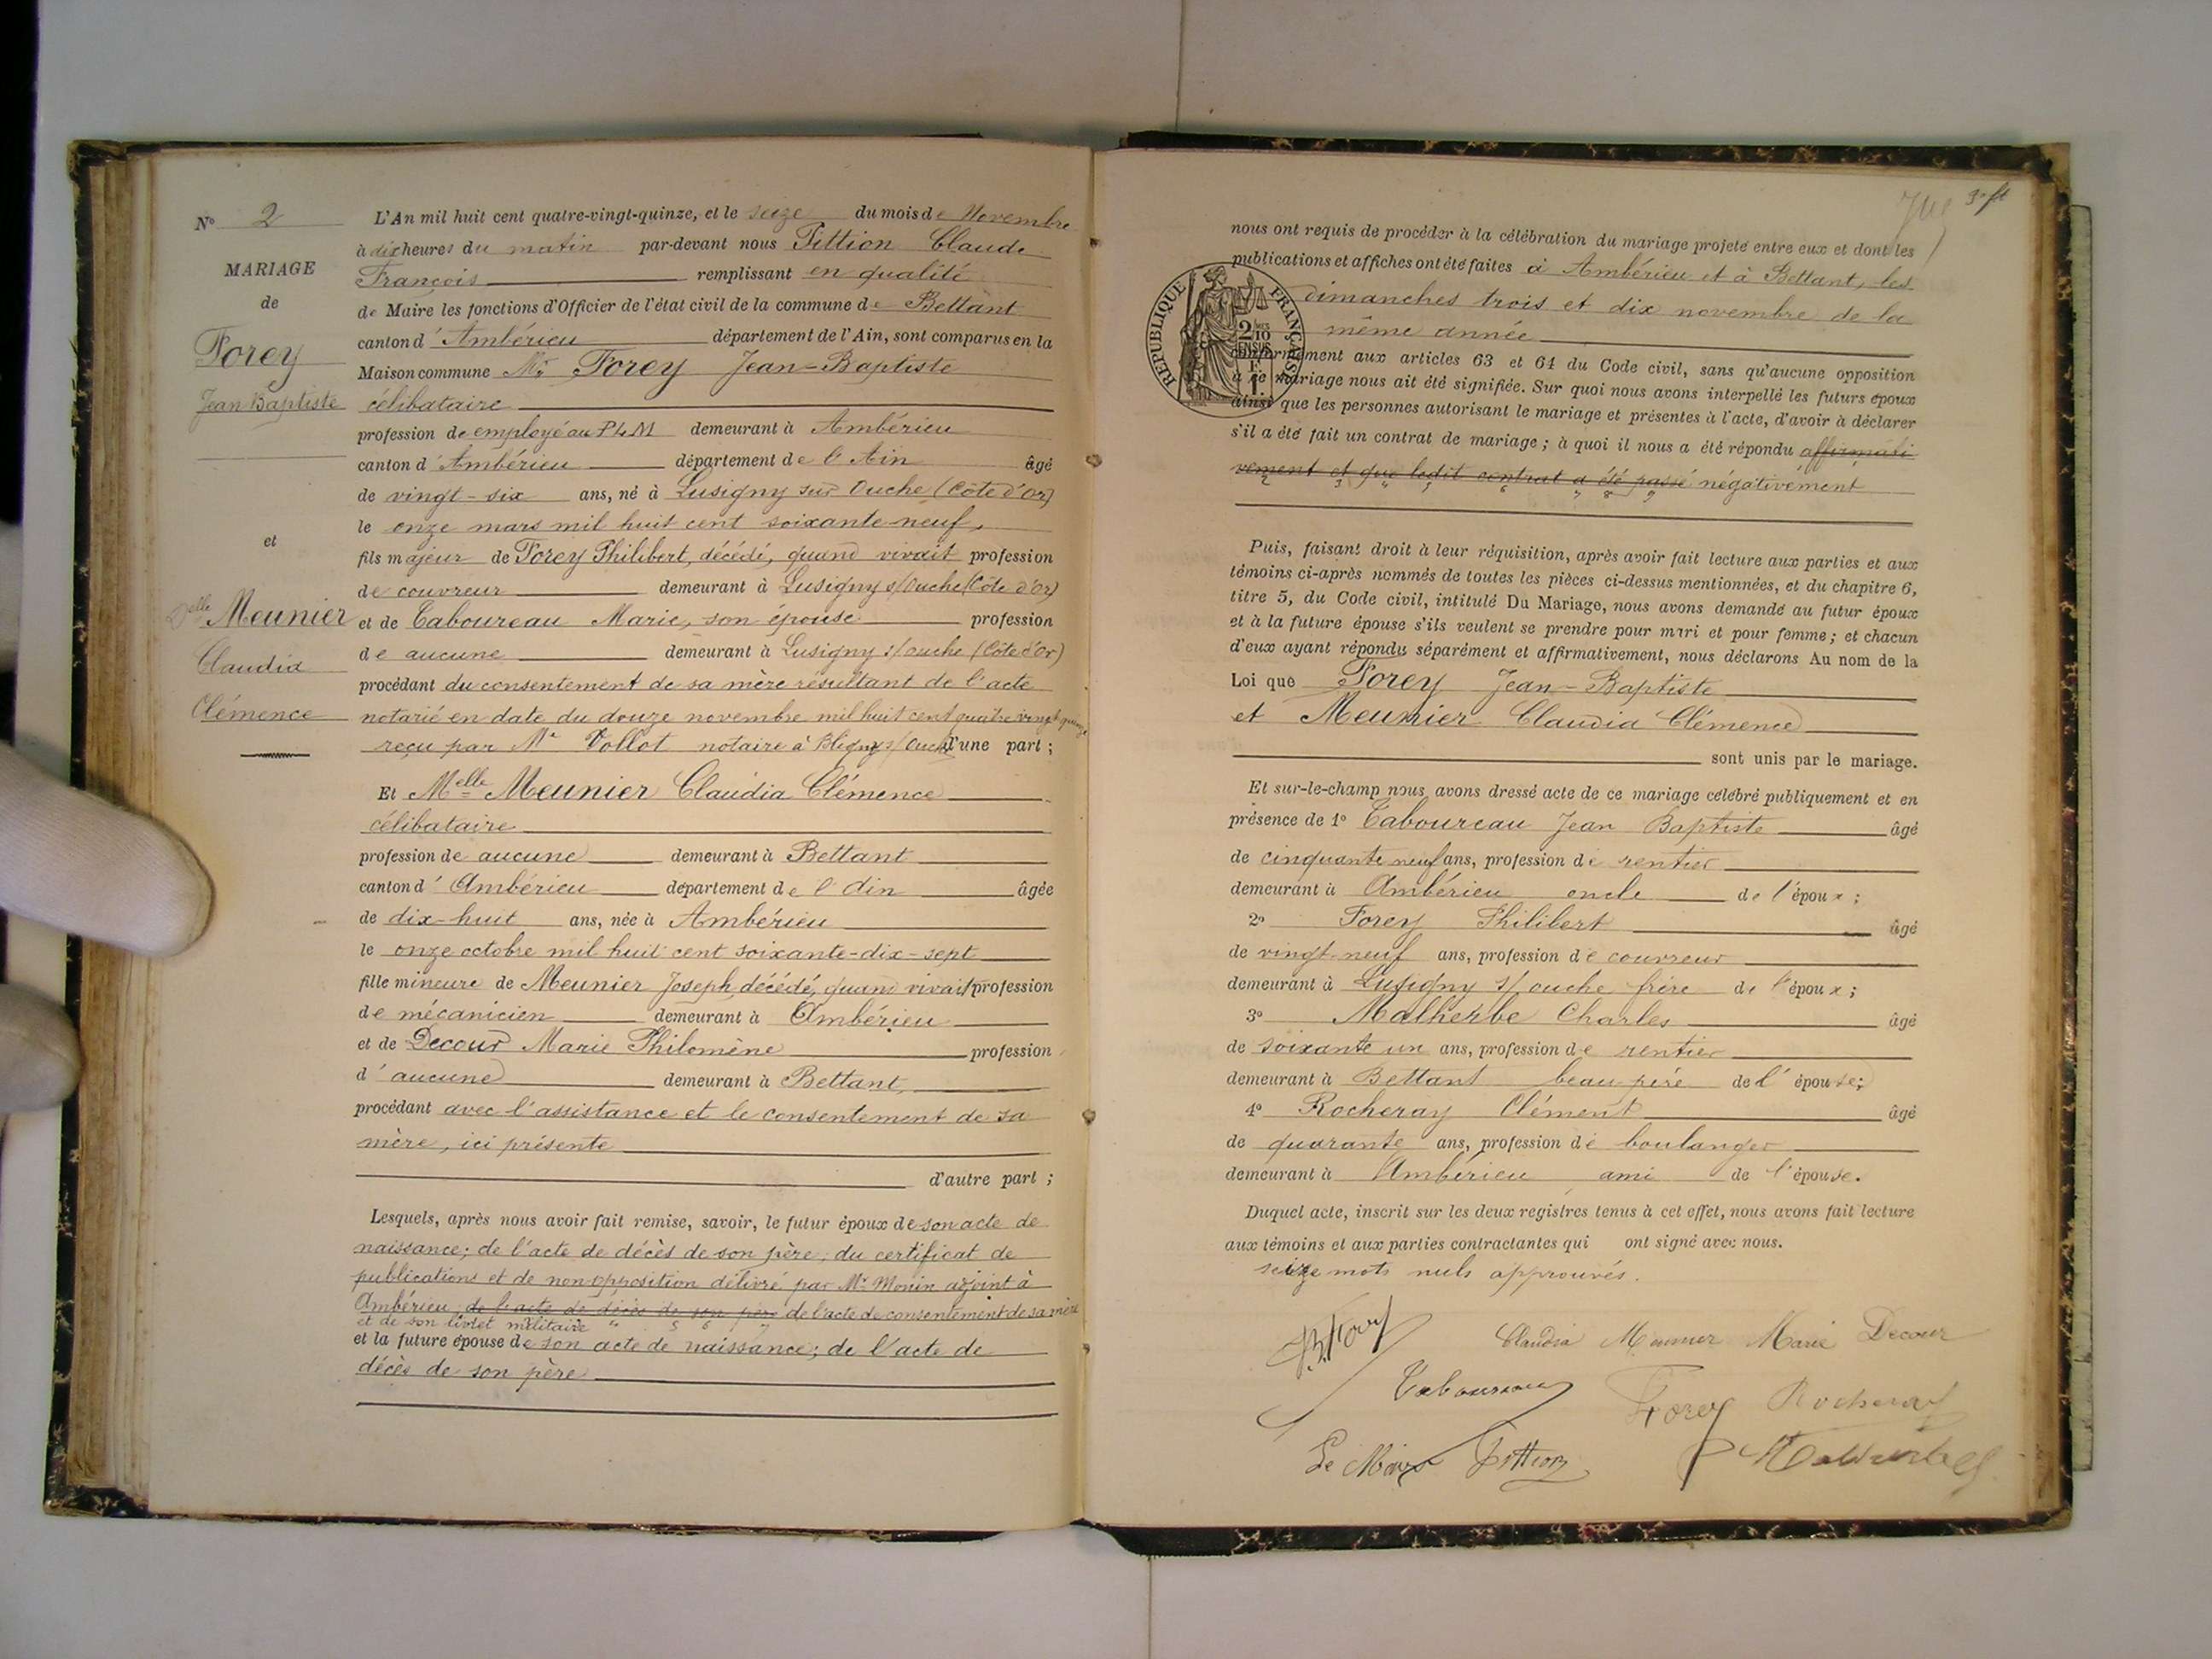 N° 2
MARIAGE
de
Forey
Jean-Baptiste
et
Delle Meunier
Claudia
Clémence
L'An mil huit cent quatre-vingt-quinze, et le seize du mois de Novembre
à dix heures du matin par-devant nous Pittion Claude
François remplissant en qualité
de Maire les fonctions d'Officier de l'état civil de la commune de Bettant
canton d'Ambérieu département de l'Ain, sont comparus en la
Maison commune Mr Forey Jean-Baptiste
célibataire
profession de employé au PLM demeurant à Ambérieu
canton d'Ambérieu département de l'Ain âgé
de vingt-six ans, né à Lusigny sur Ouche (Côte d'Or)
le onze mars mil huit cent soixante neuf,
fils majeur de Forey Philibert, décédé, quand vivait profession
de couvreur demeurant à Lusigny s/Ouche (Côte d'Or)
et de Taboureau Marie, son épouse profession
de aucune demeurant à Lusigny s/ouche (Côte d'Or)
procédant du consentement de sa mère résultant de l'acte
notarié en date du douze novembre mil huit cent quatre vingt quinze
reçu par Me Vollot notaire à Bligny s/Ouche d'une part ;
Et Melle Meunier Claudia Clémence
célibataire
profession de aucune demeurant à Bettant
canton d'Ambérieu département de l'Ain âgée
de dix-huit ans, née à Ambérieu
le onze octobre mil huit cent soixante-dix-sept
fille mineure de Meunier Joseph décédé, quand vivait profession
de mécanicien demeurant à Ambérieu
et de Decour Marie Philomène profession
d'aucune demeurant à Bettant,
procédant avec l'assistance et le consentement de sa
mère, ici présente
d'autre part ;
Lesquels, après nous avoir fait remise, savoir, le futur époux de son acte de
naissance; de l'acte de décès de son père; du certificat de
publications et de non opposition délivré par Mr Monin adjoint à
Ambérieu, de l'acte de décès de son père de l'acte de consentement de sa mère
et de son livret militaire
et la future épouse de son acte de naissance; de l'acte de
décès de son père
3e ft
nous ont requis de procéder à la célébration du mariage projeté entre eux et dont les
publications et affiches ont été faites à Ambérieu et à Bettant, les
dimanches trois et dix novembre de la
même année
RÉPUBLIQUE FRANÇAISE
2/10 EN SUS
conformément aux articles 63 et 64 du Code civil, sans qu'aucune opposition
à ce mariage nous ait été signifiée. Sur quoi nous avons interpellé les futurs époux
ainsi que les personnes autorisant le mariage et présentes à l'acte, d'avoir à déclarer
s'il a été fait un contrat de mariage ; à quoi il nous a été répondu affirmati
vement et que ledit contrat a été passé négativement
Puis, faisant droit à leur réquisition, après avoir fait lecture aux parties et aux
témoins ci-après nommés de toutes les pièces ci-dessus mentionnées, et du chapitre 6,
titre 5, du Code civil, intitulé Du Mariage, nous avons demandé au futur époux
et à la future épouse s'ils veulent se prendre pour mari et pour femme ; et chacun
d'eux ayant répondu séparément et affirmativement, nous déclarons Au nom de la
Loi que Forey Jean-Baptiste
et Meunier Claudia Clémence
sont unis par le mariage.
Et sur-le-champ nous avons dressé acte de ce mariage célébré publiquement et en
présence de 1° Taboureau Jean Baptiste âgé
de cinquante neuf ans, profession de rentier
demeurant à Ambérieu oncle de l'époux ;
2° Forey Philibert âgé
de vingt-neuf ans, profession de couvreur
demeurant à Lusigny s/ouche frère de l'époux ;
3° Malherbe Charles âgé
de soixante un ans, profession de rentier
demeurant à Bettant beau père de l'épouse;
4° Rocheray Clément âgé
de quarante ans, profession de boulanger
demeurant à Ambérieu ami de l'épouse.
Duquel acte, inscrit sur les deux registres tenus à cet effet, nous avons fait lecture
aux témoins et aux parties contractantes qui ont signé avec nous.
seize mots nuls approuvés.
JB Forey Claudia Meunier Marie Decour
Taboureau Forey Rocheray
Le Maire Pittion Malherbe